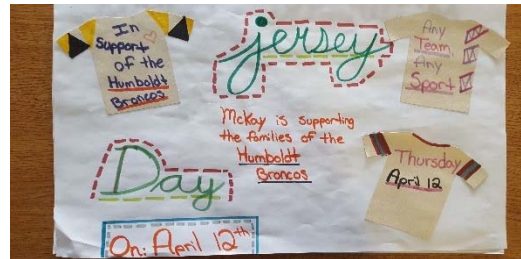 In
Support
of the
Humboldt
Broncos
jersey
Any
Team
Any
Sport
McKay is supporting
the families of the
Humboldt
Broncos
Day
Thursday
April 12
On: April 12th